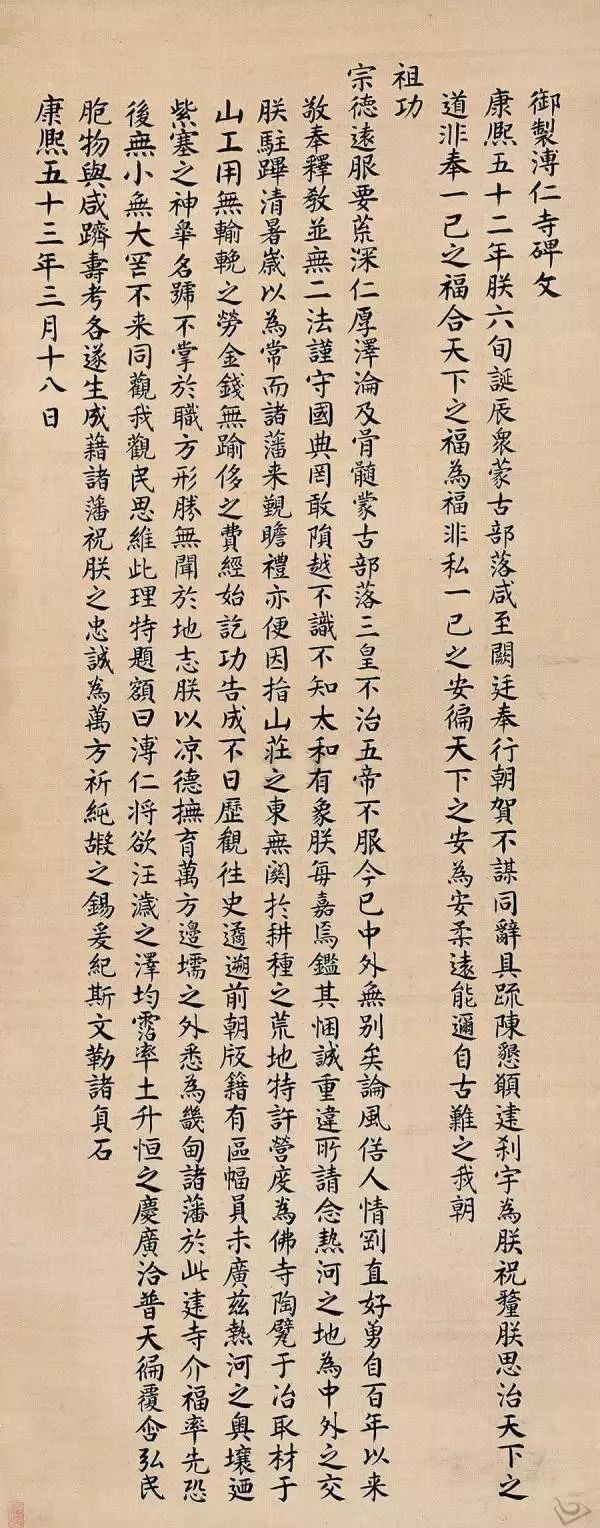 御製溥仁寺碑文
康熙五十二年朕六旬誕辰衆蒙古部落咸至闕廷奉行朝賀不謀同辭具疏陳懇願建刹宇為朕祝釐朕思治天下之
道非奉一己之福合天下之福為福非私一己之安徧天下之安為安柔遠能邇自古難之我朝
祖功
宗德遠服要荒深仁厚澤淪及骨髓蒙古部落三皇不治五帝不服今已中外無別矣論風俗人情剛直好勇自百年以来
敬奉釋教並無二法謹守國典罔敢隕越不識不知太和有象朕每嘉焉鑑其悃誠重違所請念熱河之地為中外之交
朕駐蹕清暑歲以為常而諸藩来覲瞻禮亦便因指山莊之東無関於耕種之荒地特許營度為佛寺陶甓于冶取材于
山工用無輸輓之勞金錢無踰侈之費經始訖功告成不日歷觀往史遹遡前朝版籍有區幅員未廣茲熱河之奥壤迺
紫塞之神皋名號不掌於職方形勝無聞於地志朕以涼德撫育萬方邊堧之外悉為畿甸諸藩於此建寺介福率先恐
後無小無大罔不来同觀我觀民思維此理特題額曰溥仁将欲汪濊之澤均霑率土升恒之慶廣洽普天徧覆含弘民
胞物與咸躋壽考各遂生成藉諸藩祝朕之忠誠為萬方祈純嘏之錫爰紀斯文勒諸貞石
康熙五十三年三月十八日